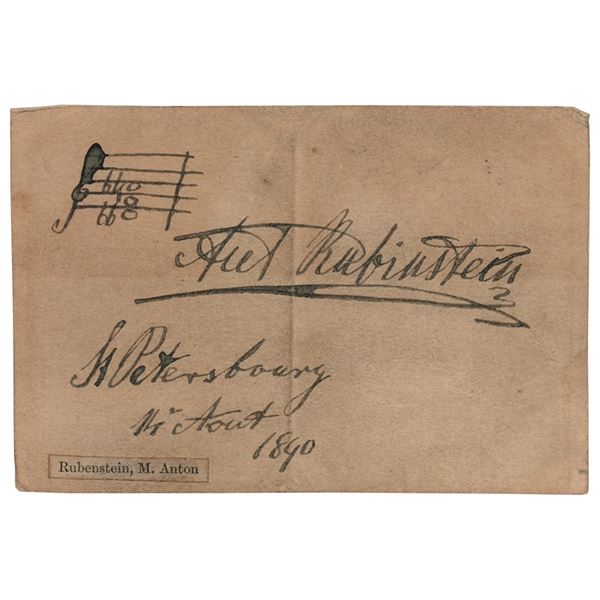 Ant Rubinstein
St Petersbourg
Aout
1890
Rubenstein, M. Anton